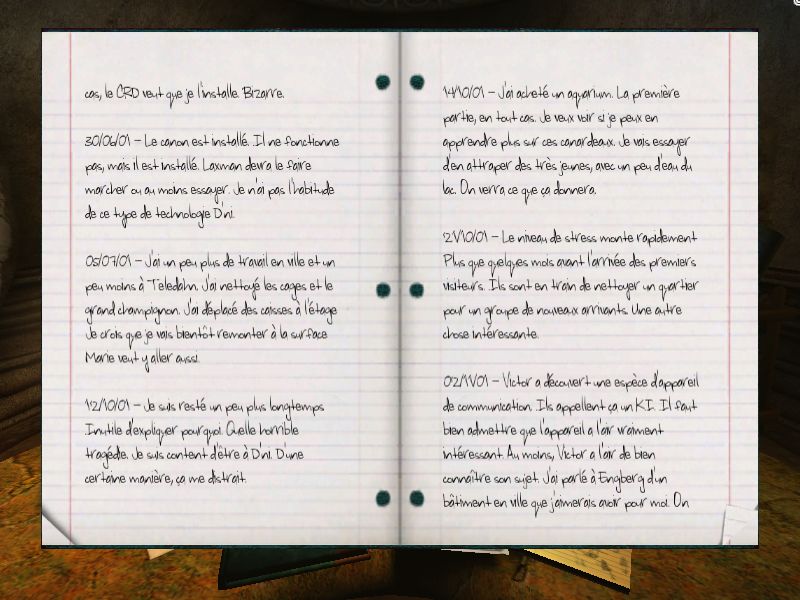 cas, le CRD veut que je l'installe. Bizarre.
30/06/01 – Le canon est installé. Il ne fonctionne
pas, mais il est installé. Laxman devra le faire
marcher ou au moins essayer. Je n'ai pas l'habitude
de ce type de technologie D'ni.
05/07/01 – J'ai un peu plus de travail en ville et un
peu moins à Teledahn. J'ai nettoyé les cages et le
grand champignon. J'ai déplacé des caisses à l'étage
Je crois que je vais bientôt remonter à la surface
Marie veut y aller aussi.
12/10/01 – Je suis resté un peu plus longtemps
Inutile d'expliquer pourquoi. Quelle horrible
tragédie. Je suis content d'être à D'ni. D'une
certaine manière, ça me distrait.
14/10/01 – J'ai acheté un aquarium. La première
partie, en tout cas. Je veux voir si je peux en
apprendre plus sur ces canardeaux. Je vais essayer
d'en attraper des très jeunes, avec un peu d'eau du
lac. On verra ce que ça donnera.
21/10/01 – Le niveau de stress monte rapidement
Plus que quelques mois avant l'arrivée des premiers
visiteurs. Ils sont en train de nettoyer un quartier
pour un groupe de nouveaux arrivants. Une autre
chose intéressante.
02/11/01 – Victor a découvert une espèce d'appareil
de communication. Ils appellent ça un KI. Il faut
bien admettre que l'appareil a l'air vraiment
intéressant. Au moins, Victor a l'air de bien
connaître son sujet. J'ai parlé à Engberg d'un
bâtiment en ville que j'aimerais avoir pour moi. On